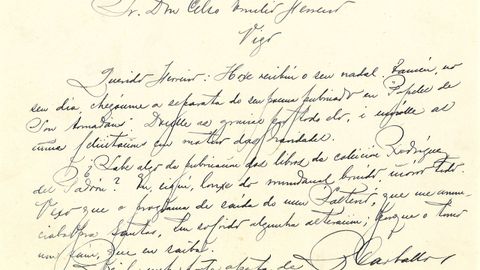 Sr. Don Celso Emilio Ferreiro
Vigo
Querido Ferreiro: Hoxe recibín o seu nadal. Tamén, no
seu día chegóume a separata do seu poema pubricado en Papeles de
Son Armadans. Doulle as gracias por todo elo, i envíolle as
miñas felicitacións en motivo das Navidades.
¿Sabe algo da pubricación dos libros da colección Rodríguez
del Padrón? Eu, eiquí, lonxe do mundanal bruído, inoro todo.
Vexo que o programa de saída do meu Salterio, que me anun-
ciaba pra Santos, ten sofrido algunha alteración, porque o tomo
non saíu, que eu saiba.
aperta de
Carballo